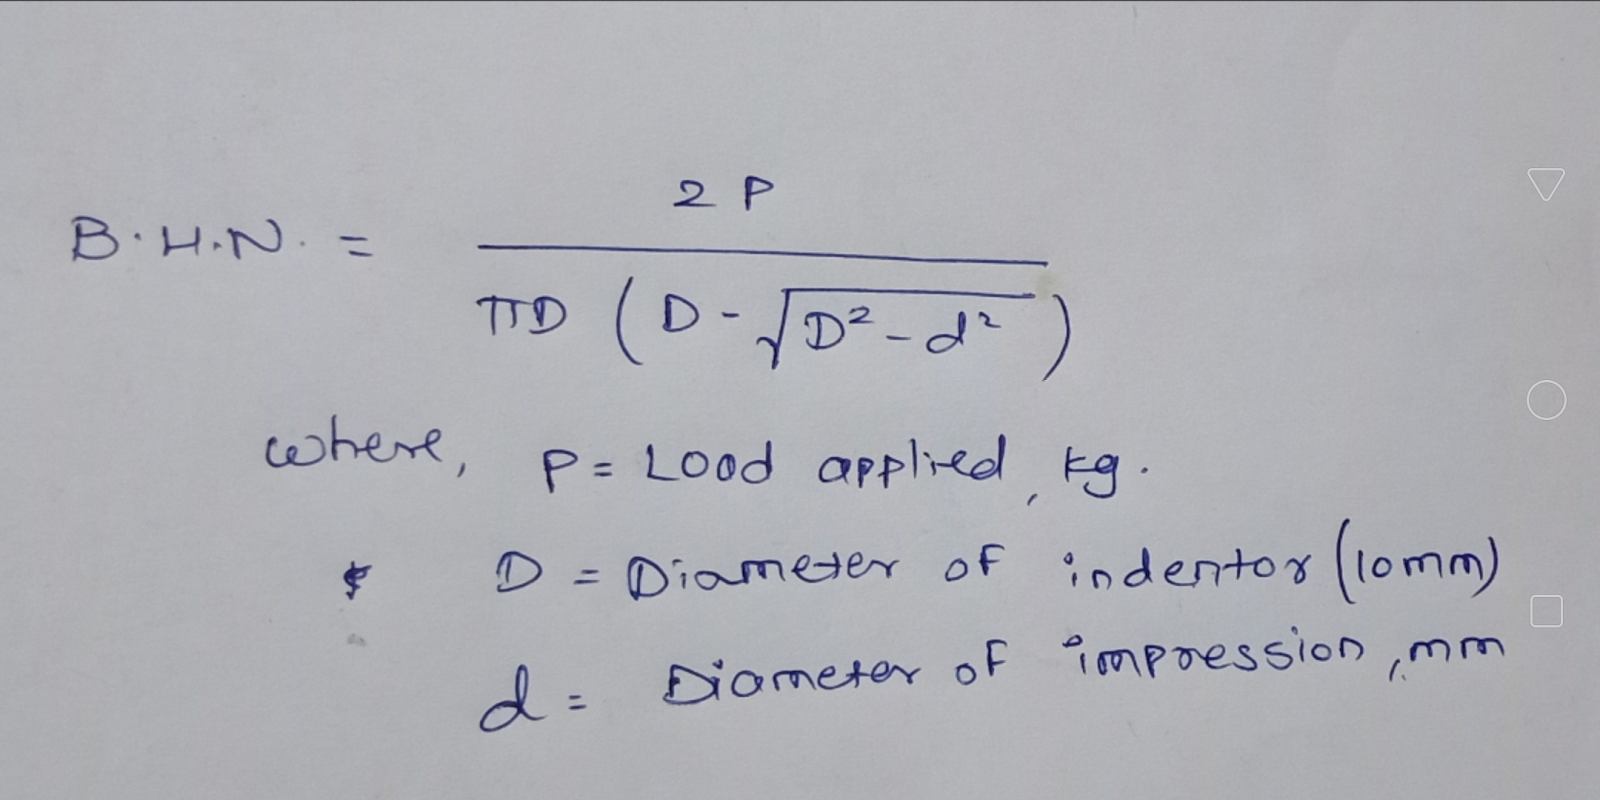 B.H.N. = 2P / πD (D - √D² - d²)
where, P = Load applied, kg.
D = Diameter of indentor (10mm)
d = Diameter of impression, mm